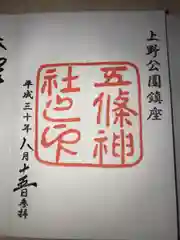 上野公園鎮座
五條神
社之印
平成三十年八月十五日参拝